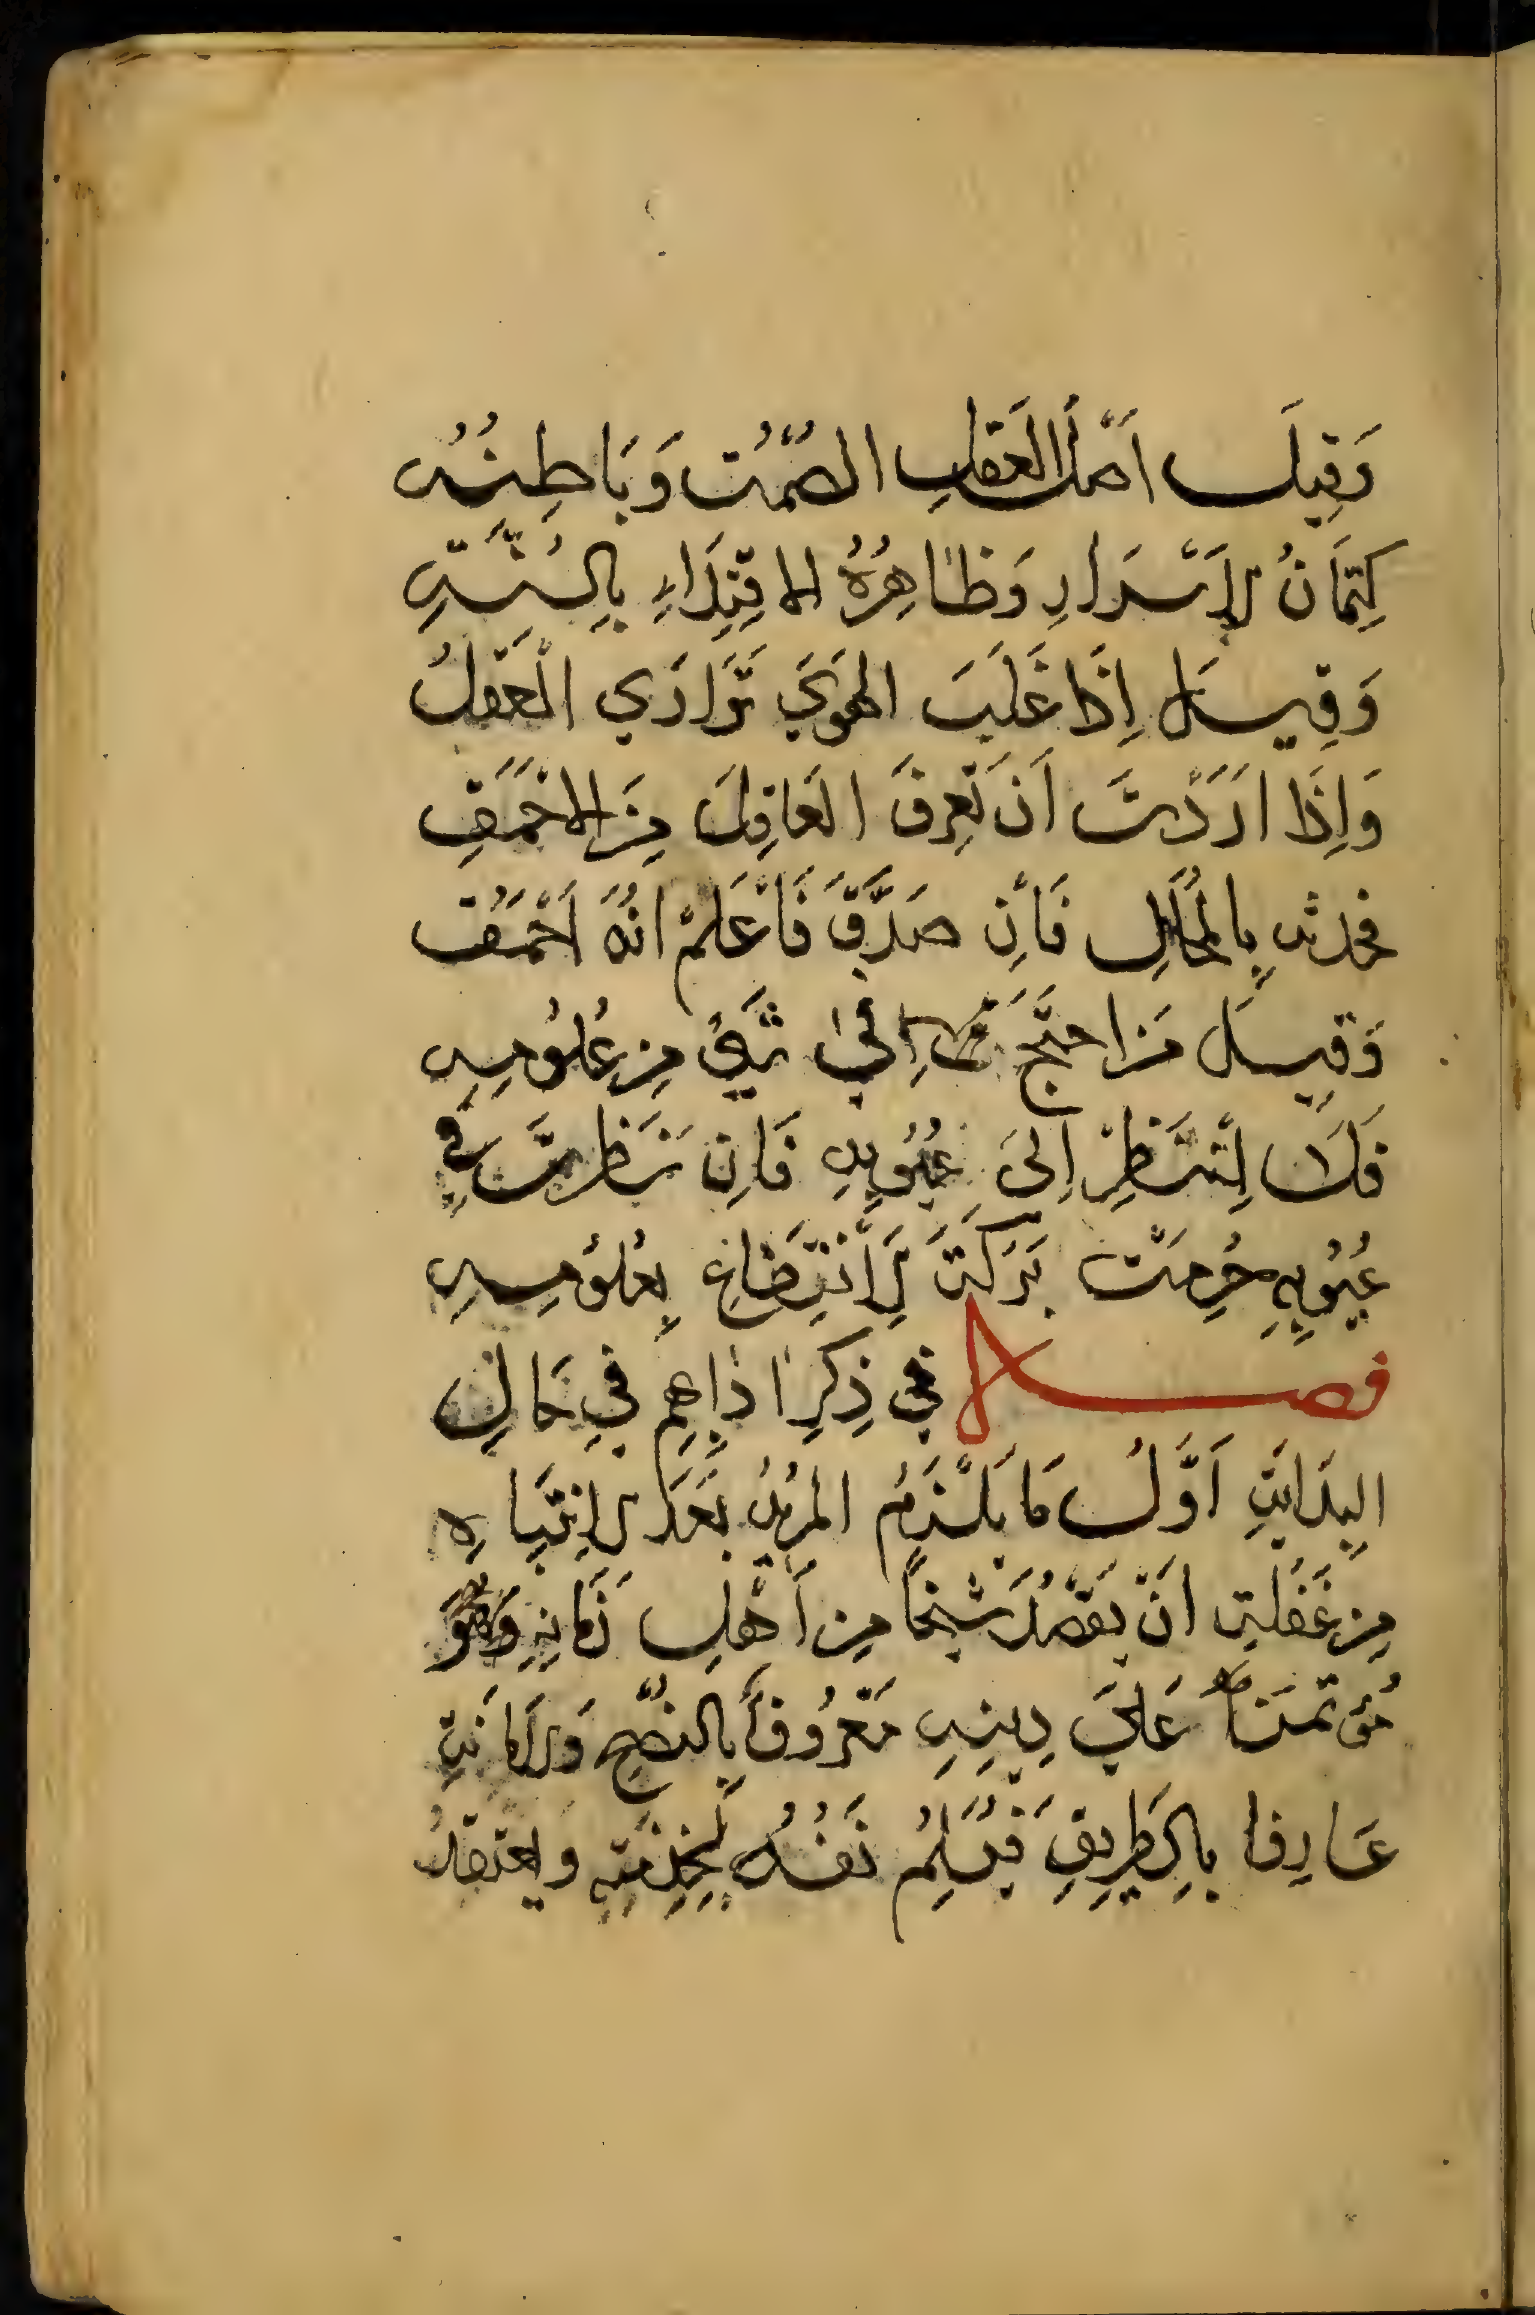 وَقِيلَ اَصْلُ العَقلِ الصَّمْتُ وَبَاطِنُهُ
كِتمَانُ الاَسْرَارِ وَظَاهِرُهُ الاقتِدَاءِ بِالسُنَّةِ
وَقِيلَ اِذَا غَلَبَ الهَويَ تَوَارَي العَقلُ
وَاِذَا اَرَدْتَ اَن تَعرِفَ العَاقِلَ مِنَ الاحْمَقِ
فحدثه بِالمُحَالِ فَأِن صَدَّقَ فَأعْلَمْ انَّهُ اَحْمَقُ
وَقِيلَ مَن احتَجَّ اِليٰ شَيءٍ مِن عُلُومِهِ
فَلَا تَنظُرْ اِليَ عُيُوبِهِ فَاِن نَظَرتَ في
عُيُوبِهِ حُرِمتَ بَرَكَتَ الأَنتِفَاعِ بِعُلُومِهِ
فصل في ذِكِرِ اٰدٰابِهِم فِي حَالِ
البِدَايَةِ اَوَّلُ مَا يَلْزَمُ المُرِيدُ بَعَدَ الاِنتِبَاهِ
مِن غَفلَتِهِ اَنْ يَقصُدَ شَيخاً مِن أَهْلِ زَمَانِهِ وَهُوَ
مُؤتَمَناً عَليَ دِينِهِ مَعْرُوفاً بِالنصُّحِ وَالاَمَانَةِ
عَارِفا بِالطَرِيقِ فَيُسَلِمُ نَفسُهُ لِخِدْمَتِهِ ويعتقدُ